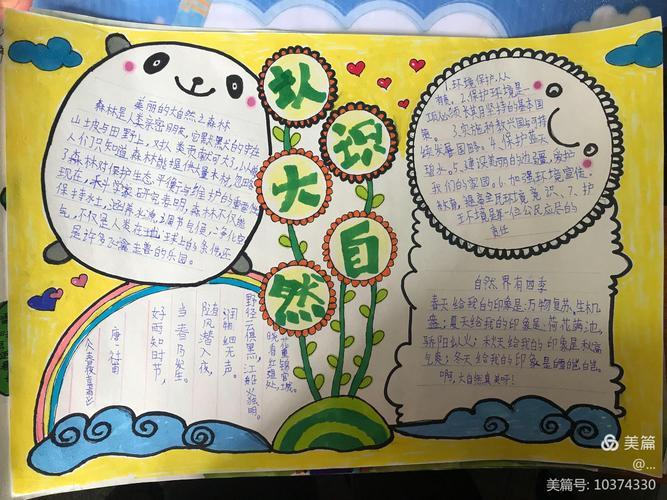 认
识
大
自
然
美丽的大自然之森林
森林是人类亲密朋友,它默默
山土坡与田野上,对人类贡献可大了,以前
人们只知道,森林能提供大量木材,忽略
了森林对保护生态平衡与维护的重要作
现在,科学家研究表明,森林不仅能
保持水土,涵养水源,调节气候,净化空
气,不仅是人类在地球上的条件,还
是许多飞禽走兽的乐园。
1.环境保护,人
有责。2.保护环境是一
项必须长期坚持的基本国
策。3.实施科教兴国与可持
续发展国略。4.保护蓝天
碧水。5.建设美丽的边疆,爱护
我们的家园。6.加强环境宣传
教育,提高全民环境意识。7.护
环境是每一位公民应尽的
责任
春夜喜雨
唐·杜甫
好雨知时节,
当春乃发生。
随风潜入夜,
润物细无声。
野径云俱黑,江船火独明。
晓看红湿处,
花重锦官城。
自然界有四季
春天给我的印象是:万物复苏,生机
盎;夏天给我的印象是:荷花满池,
骄阳似火;秋天给我的印象是秋高
气爽;冬天给我的印象是白雪皑皑。
啊,大自然真美呀!
美篇
@...
美篇号: 10374330